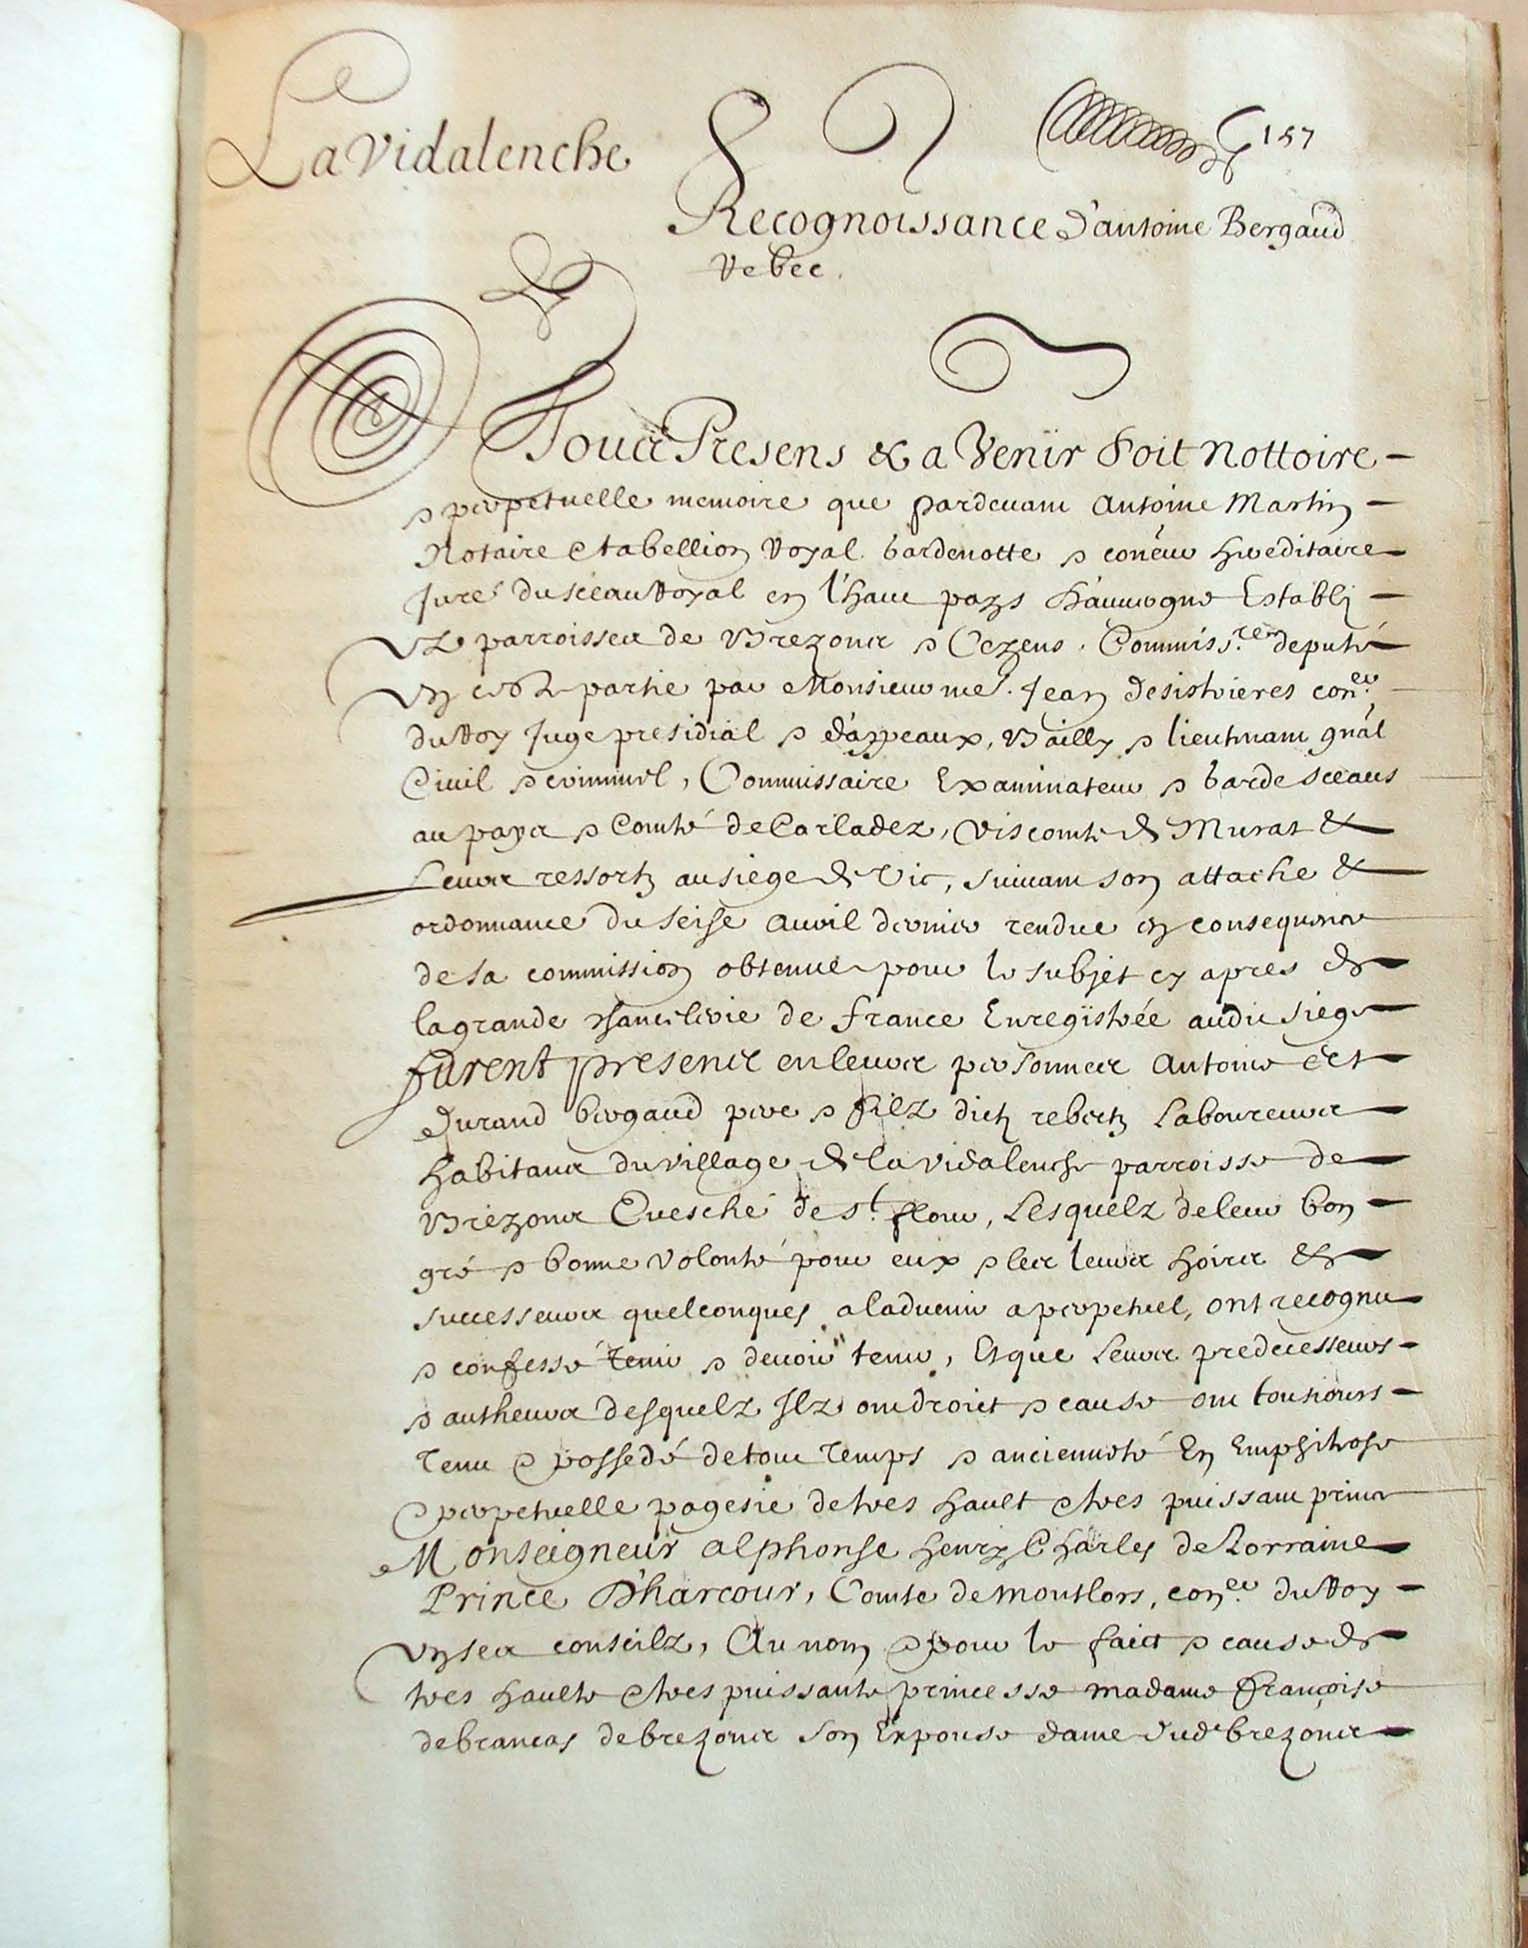 La Vidalenche
157
Recognoissance d'antoine Bergaud
Rebee.
A Tous Presens & a Venir Soit Nottoire
& perpetuelle memoire que pardevant Antoine Martin
Notaire & tabellion Royal gardenotte & coner hereditaire
Juré du sceau Royal en l'haut pays d'auvergne Estably
Ez parroisses de Brezons & Cezens. Commiss.re deputé
En ceste partie par Monsieur me. Jean desistrieres coner.
du Roy Juge presidial & d'appeaux, Bailly & lieutenant gnãl
Civil & criminel, Commissaire Examinateur & garde sceaus
au pays & Comté de Carladez, Viscomté de Murat &
Leurs ressortz au siege de Vic, suivant son attache &
ordonnance du seise avril dernier rendue en consequence
de sa commission obtenue pour le subjet cy apres de
la grande chancelerie de france Enregistrée audit siege
furent presens en leurs personnes Antoine &
durand bergaud pere & filz dictz rebeetz Laboureurs
habitans du village de la vidalenche parroisse de
Brezons Evesché de st. flour, Lesquelz de leur bon
gré & bonne volonté pour eux & les leurs hoirs &
successeurs quelconques a ladvenir a perpetuel, ont recognu
& confessé tenir & devoir tenir, Et que Leurs predecesseurs
& autheurs desquelz Ilz ont droict & cause ont tousiours
Tenu & possedé de tout Temps & ancienneté En Emphiteose
& perpetuelle pagesie de tres hault & tres puissant prince
Monseigneur alphonse henry Charles de Lorraine
Prince D'harcour, Comte de montlors, coner. du Roy
En ses conseilz, Au nom & pour le faict & cause de
tres haulte & tres puissante princesse madame françoise
de brancas de brezons son Expouse dame dud. brezons